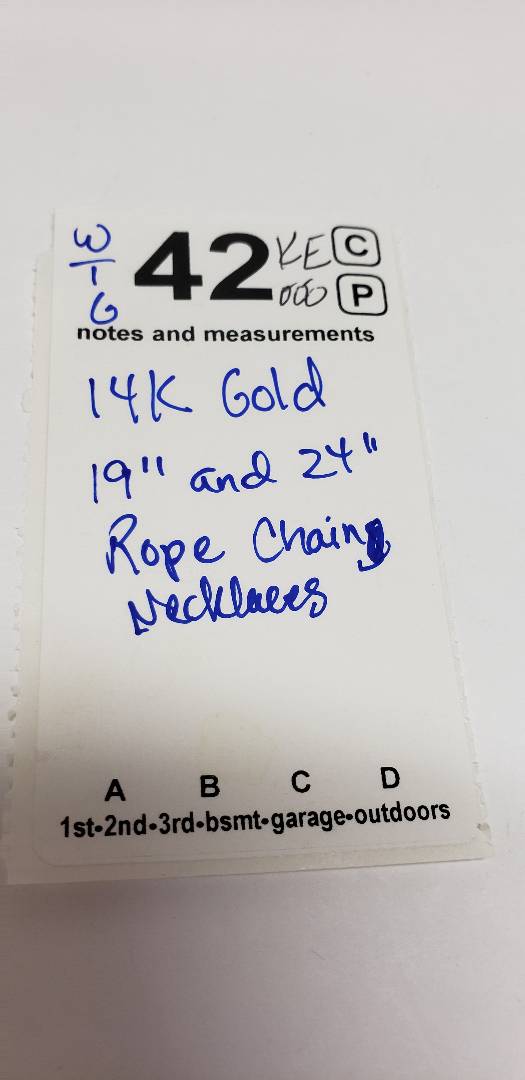 W
T
G
42 KE C
000 P
notes and measurements
14K Gold
19" and 24"
Rope Chain
Necklaces
A B C D
1st•2nd•3rd•bsmt•garage•outdoors